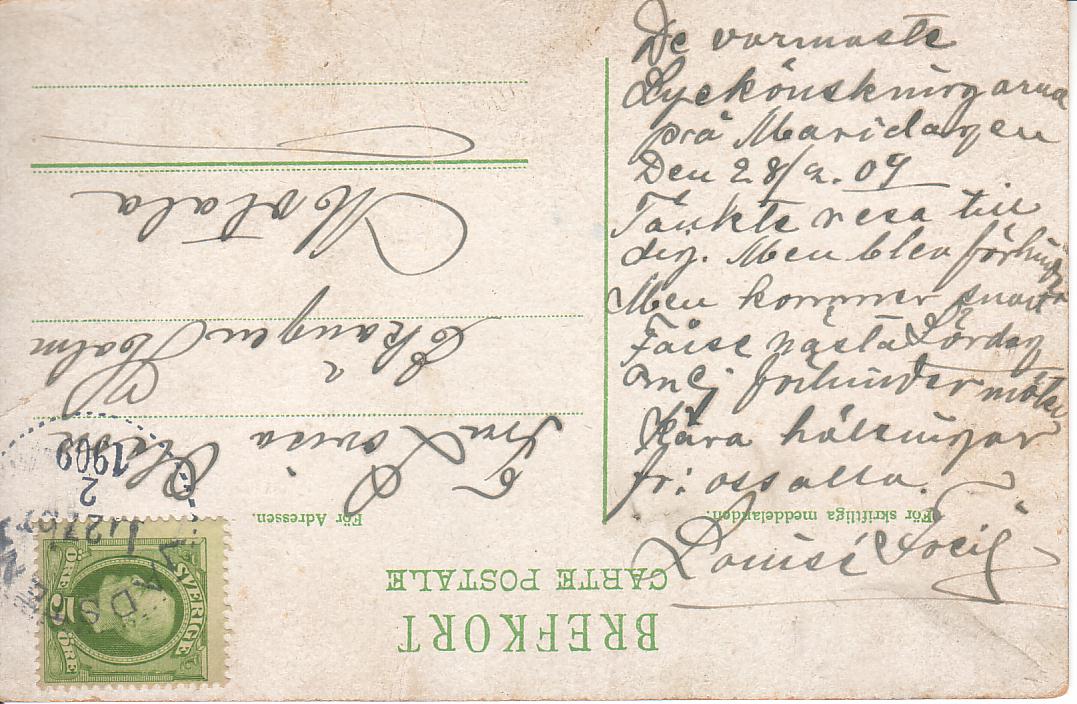 BREFKORT
CARTE POSTALE
För Adressen.
För skriftliga meddelanden.
Fru Lovisa
Skaugen Holm
Motala
De varmaste
Lyckönskningarna
på Maridagen
Den 28/2. 09
Tänkte resa till
dig. Men blev förhindra
Men kommer snart
Fåise nästa Lördag
om ej förhinder möter
Kära hälsningar
fr: oss alla.
Louise
SVERIGE
5
ÖRE ÖRE
1909
2
27